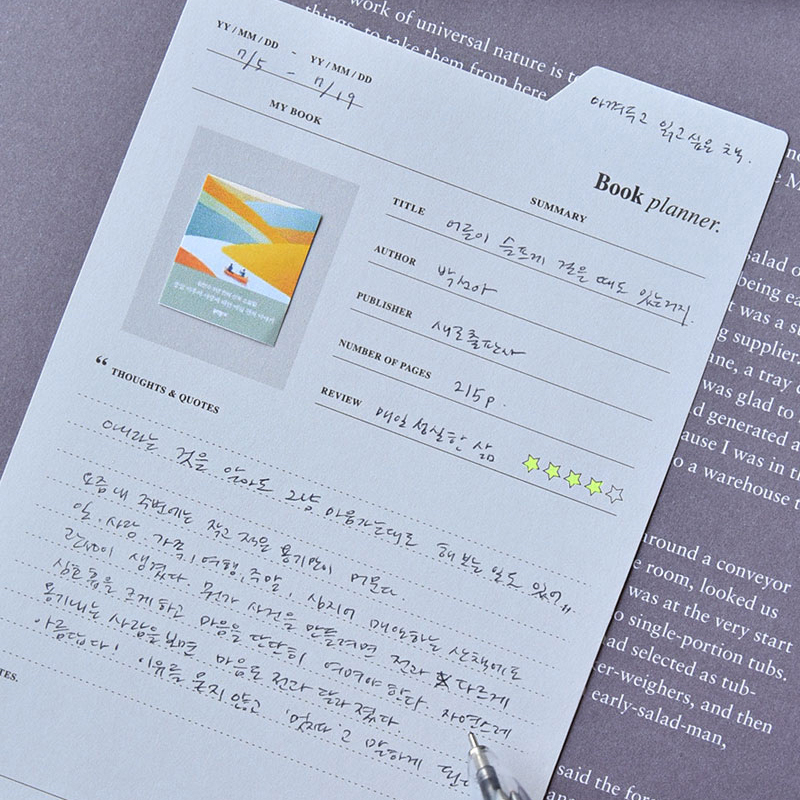 work of universal nature is to
things, to take them from here
YY / MM / DD - YY / MM / DD
7/5 - 7/19
아껴두고 읽고싶은 책.
MY BOOK
Book planner.
SUMMARY
TITLE 어른이 슬프게 걸을 때도 있는거지.
AUTHOR 박선아
PUBLISHER 새로출판사
NUMBER OF PAGES 215p.
REVIEW 매일 성실한 삶
“ THOUGHTS & QUOTES
아니라는 것을 알아도 그냥 마음가는대로 해보는 일도 있어.„
요즘 내 주변에는 작고 적은 용기만이 머문다
일, 사랑, 가족, 여행, 주말, 심지어 매일하는 산책에도
생겼다. 뭔가 사건을 만들려면 전과 다르게
심호흡을 크게하고 마음을 단단히 여며야 한다. 자연스레
용기내는 사람을 보면 마음도 전과 달라졌다.
아름답다! 이유를 묻지 않고 '멋지다'고 말하게 된다
NOTES.
salad
being
t was a
supplier
ane, a tray
was glad to
d generated
ause I was in th
o a warehouse t
around a conveyor
e room, looked us
was at the very start
o single-portion tubs.
ad selected as tub-
er-weighers, and then
early-salad-man,
said the